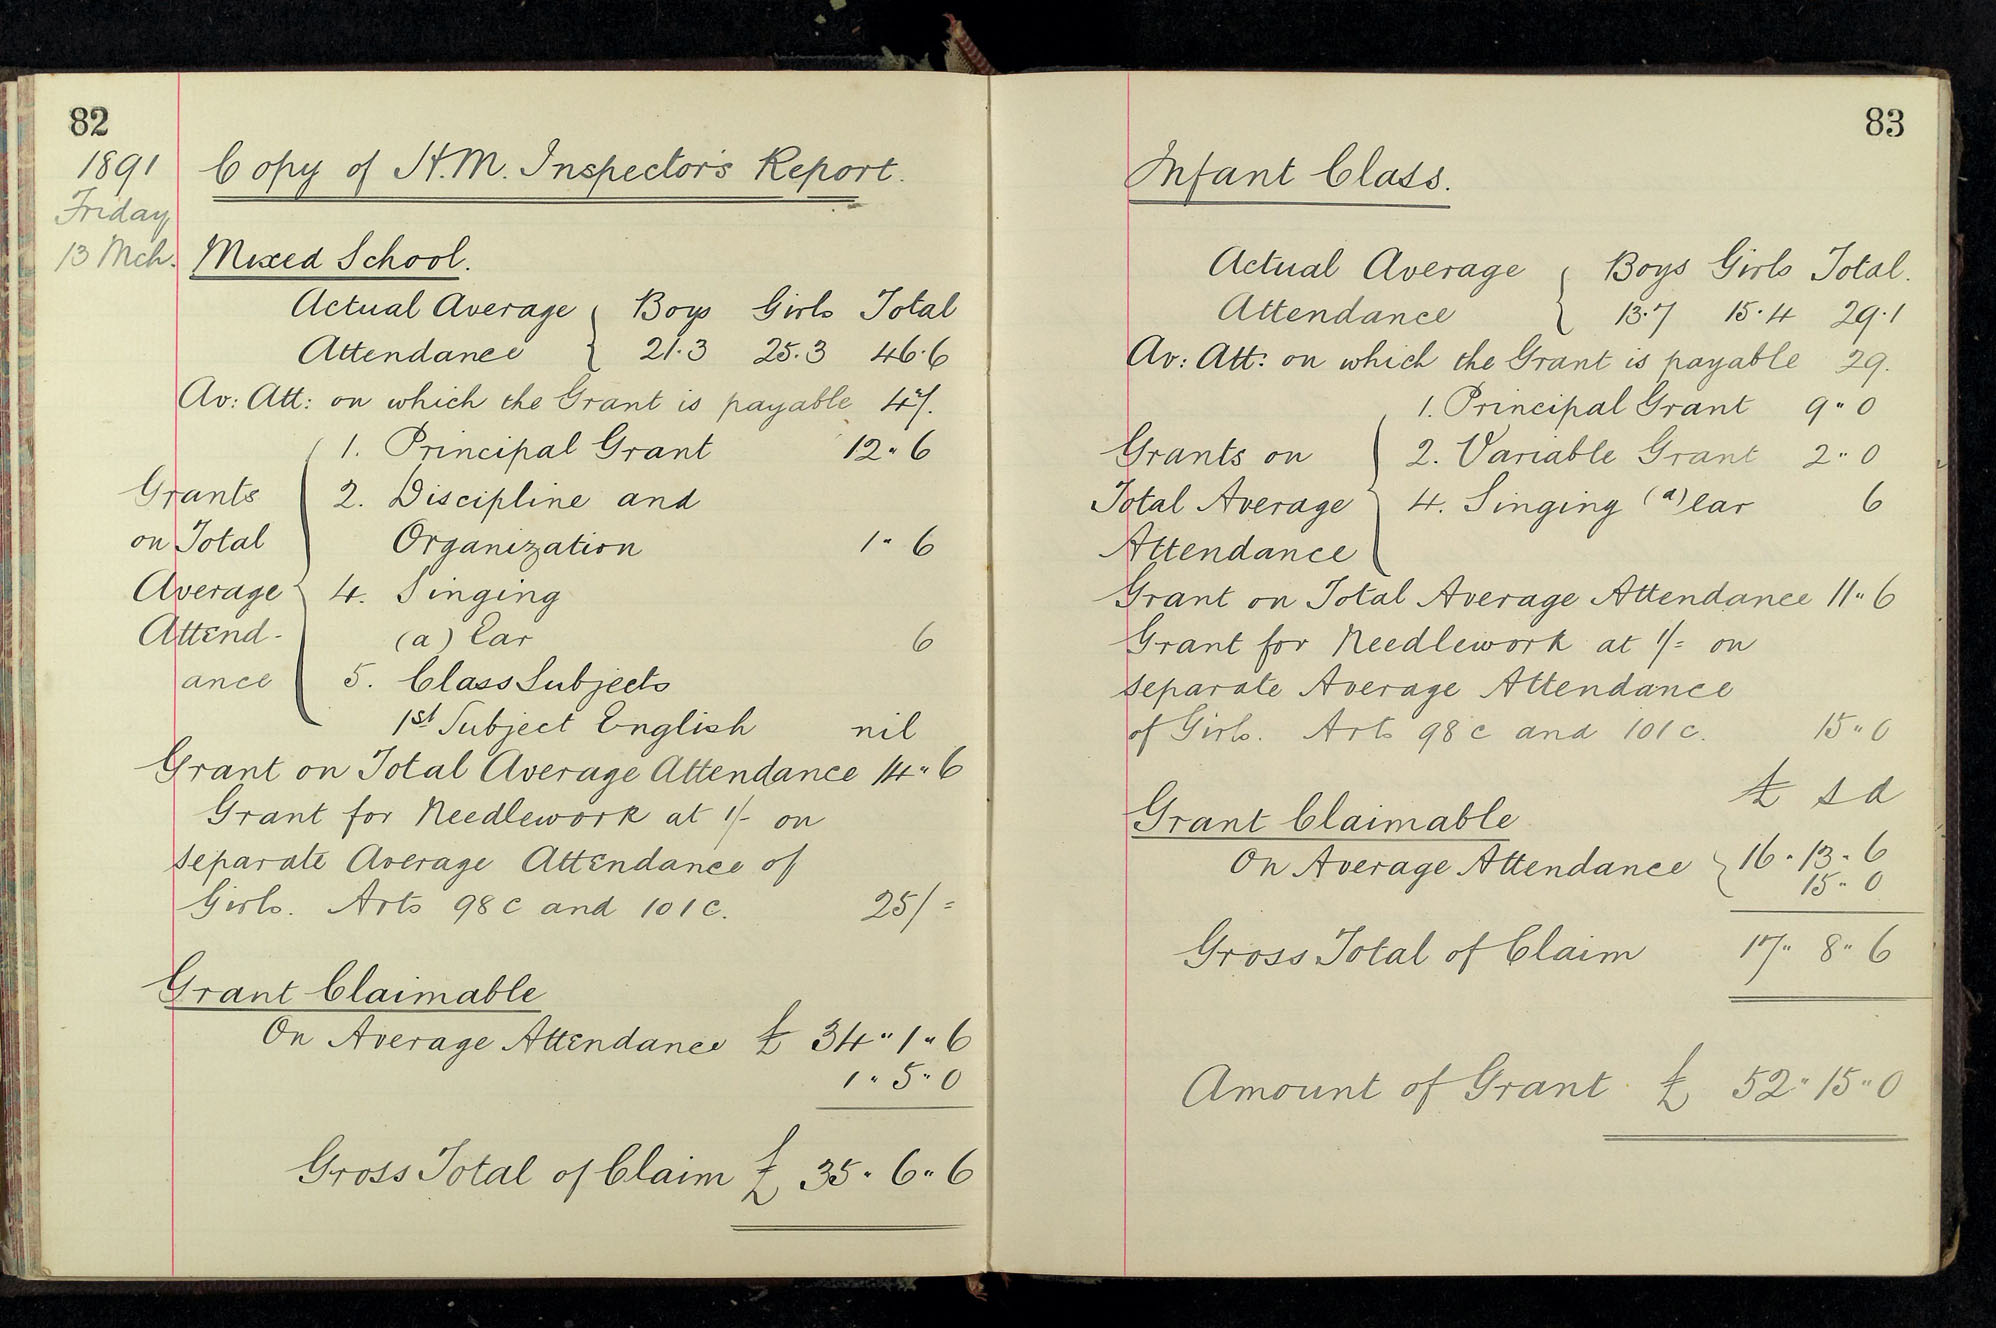 82
1891 Copy of H.M. Inspector's Report.
Friday
13 Mch. Mixed School.
Actual Average { Boys Girls Total
Attendance { 21.3 25.3 46.6
Av: Att: on which the Grant is payable 47.
1. Principal Grant 12" 6
Grants 2. Discipline and
on Total Organization 1" 6
Average 4. Singing
Attend- (a) Ear 6
ance 5. Class Subjects
1st Subject English nil
Grant on Total Average Attendance 14" 6
Grant for Needlework at 1/- on
separate Average Attendance of
Girls. Arts 98 c and 101 c. 25/=
Grant Claimable
On Average Attendance £ 34" 1" 6
1" 5" 0
Gross Total of Claim £ 35" 6" 6
83
Infant Class.
Actual Average { Boys Girls Total.
Attendance { 13.7 15.4 29.1
Av: Att: on which the Grant is payable 29.
1. Principal Grant 9" 0
Grants on 2. Variable Grant 2" 0
Total Average 4. Singing (a) ear 6
Attendance
Grant on Total Average Attendance 11" 6
Grant for Needlework at 1/= on
separate Average Attendance
of Girls. Arts 98 c and 101 c. 15" 0
£ s d
Grant Claimable
On Average Attendance } 16" 13" 6
15" 0
Gross Total of Claim 17" 8" 6
Amount of Grant £ 52" 15" 0